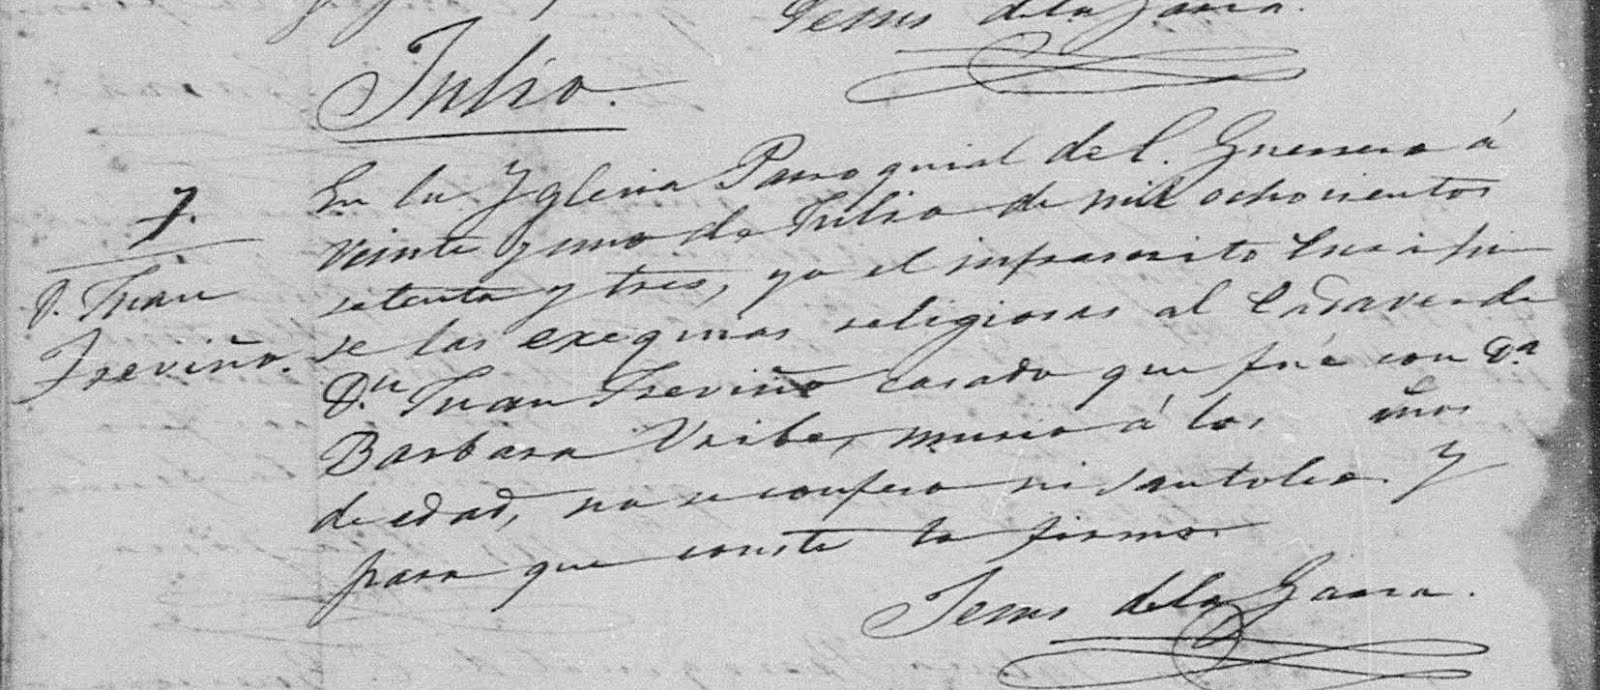 Jesus dela Garza.
Julio.
7.
D. Juan
Treviño.
En la Yglecia Parroquial de C. Guerrero á
veinte y uno de Julio de mil ochocientos
setenta y tres, yo el infrascrito Cura hi
se las exequias religiosas al Cadaver de
D.n Juan Treviño casado que fué con D.a
Barbara Uribe, murio á los años
de edad, no se confeso ni Santoleo. Y
para que conste lo firmo.
Jesus dela Garza.